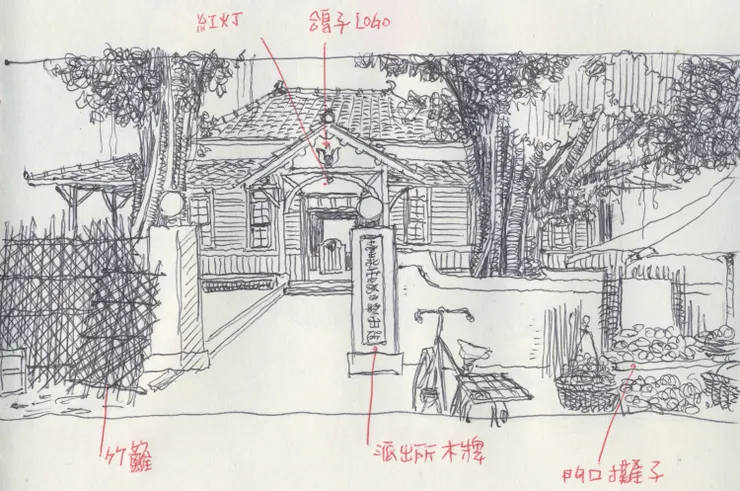 紅灯
鴿子LOGO
竹籬
派出所木牌
門口攤子